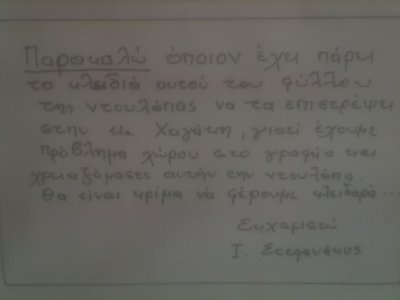 Παρακαλώ όποιον έχει πάρει
τα κλειδιά αυτού του φύλλου
της ντουλάπας να τα επιστρέψει
στην κα. Χαγάκη, γιατί έχουμε
πρόβλημα χώρου στο γραφείο και
χρειαζόμαστε αυτήν την ντουλάπα.
Θα είναι κρίμα να φέρουμε κλειδαρά...
Ευχαριστώ
Ι. Στεφανάκος